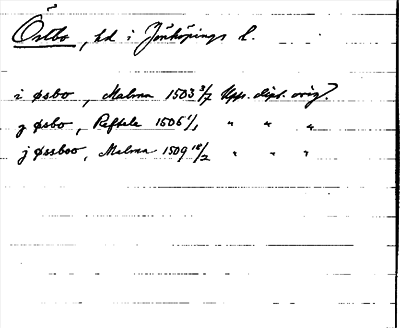 Östbo, hd i Jönköpings l.
i øsbo, Malma 1503 3/7 Upps. dipl. orig.
j øsbo, Reftele 1506 1/1 " " "
j øssboo, Malma 1509 18/2 " " "